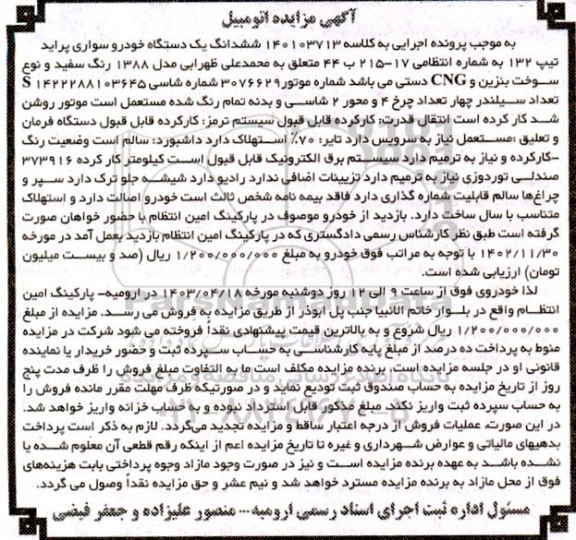 آگهی مزایده اتومبیل
به موجب پرونده اجرایی به کلاسه ۱۴۰۱۰۳۷۱۳ ششدانگ یک دستگاه خودرو سواری پراید
تیپ ۱۳۲ به شماره انتظامی ۱۷-۲۱۵ ب ۴۴ متعلق به محمدعلی ظهرابی مدل ۱۳۸۸ رنگ سفید و نوع
سوخت بنزین و CNG دستی می باشد شماره موتور ۳۰۷۶۶۲۹ شماره شاسی S ۱۴۲۲۲۸۸۱۰۳۶۴۵
تعداد سیلندر چهار تعداد چرخ ۴ و محور ۲ شاسی و بدنه تمام رنگ شده مستعمل است موتور روشن
شد کار کرده است انتقال قدرت: کارکرده قابل قبول سیستم ترمز: کارکرده قابل قبول دستگاه فرمان
و تعلیق :مستعمل نیاز به سرویس دارد تایر: ۷۰٪ استهلاک دارد داشبورد: سالم است وضعیت رنگ
-کارکرده و نیاز به ترمیم دارد سیستم برق الکترونیک قابل قبول است کیلومتر کار کرده ۳۷۳۹۱۶
صندلی توردوزی نیاز به ترمیم دارد تزیینات اضافی ندارد رادیو دارد شیشه جلو ترک دارد سپر و
چراغ‌ها سالم قابلیت شماره گذاری دارد فاقد بیمه نامه شخص ثالث است خودرو اصالت دارد و استهلاک
متناسب با سال ساخت دارد. بازدید از خودرو موصوف در پارکینگ امین انتظام با حضور خواهان صورت
گرفته است طبق نظر کارشناس رسمی دادگستری که در پارکینگ امین انتظام بازدید بعمل آمد در مورخه
۱۴۰۲/۱۱/۳۰ با توجه به مراتب فوق خودرو به مبلغ ۱/۲۰۰/۰۰۰/۰۰۰ ریال (صد و بیست میلیون
تومان) ارزیابی شده است.
لذا خودروی فوق از ساعت ۹ الی ۱۲ روز دوشنبه مورخه ۱۴۰۳/۰۴/۱۸ در ارومیه- پارکینگ امین
انتظام واقع در بلوار خاتم الانبیا جنب پل ابوذر از طریق مزایده به فروش می رسد. مزایده از مبلغ
۱/۲۰۰/۰۰۰/۰۰۰ ریال شروع و به بالاترین قیمت پیشنهادی نقدا فروخته می شود شرکت در مزایده
منوط به پرداخت ده درصد از مبلغ پایه کارشناسی به حساب سپرده ثبت و حضور خریدار یا نماینده
قانونی او در جلسه مزایده است، برنده مزایده مکلف است ما به التفاوت مبلغ فروش را ظرف مدت پنج
روز از تاریخ مزایده به حساب صندوق ثبت تودیع نماید و در صورتیکه ظرف مهلت مقرر مانده فروش را
به حساب سپرده ثبت واریز نکند، مبلغ مذکور قابل استرداد نبوده و به حساب خزانه واریز خواهد شد.
در این صورت، عملیات فروش از درجه اعتبار ساقط و مزایده تجدید می‌گردد. لازم به ذکر است پرداخت
بدهیهای مالیاتی و عوارض شهرداری و غیره تا تاریخ مزایده اعم از اینکه رقم قطعی آن معلوم شده یا
نشده باشد به عهده برنده مزایده است و نیز در صورت وجود مازاد وجوه پرداختی بابت هزینه‌های
فوق از محل مازاد به برنده مزایده مسترد خواهد شد و نیم عشر و حق مزایده نقداً وصول می گردد.
مسئول اداره ثبت اجرای اسناد رسمی ارومیه--- منصور علیزاده و جعفر فیضی